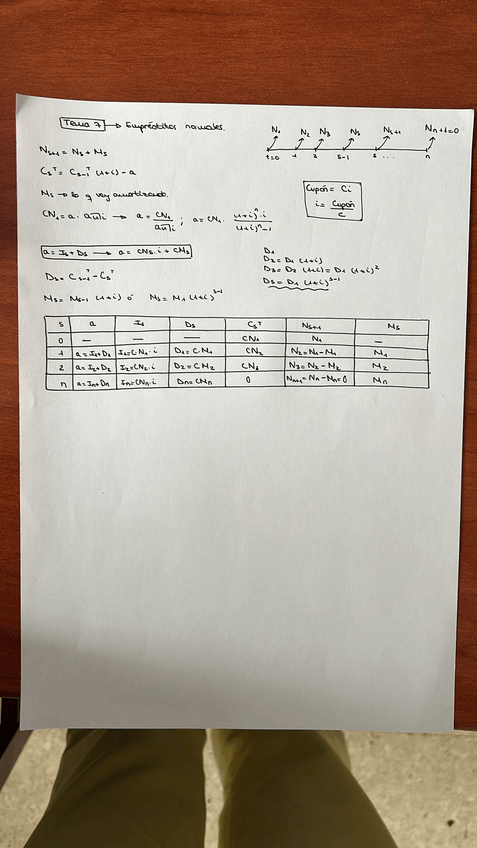 Tema 7 → Empréstitos normales.
N₁ N₂ N₃ Ns Ns+1 Nn+1=0
t=0 1 2 s-1 s ... n
Ns+1 = Ns + Ms
Csᵀ = Cs-1ᵀ (1+i) - a
Ms → lo q voy amortizando.
CN₁ = a · an˥i → a = CN₁ / an˥i ; a = CN₁ · (1+i)ⁿ · i / (1+i)ⁿ - 1
Cupón = Ci
i = Cupón / C
a = Is + Ds → a = CNs · i + CMs
Ds = Cs-1ᵀ - Csᵀ
Ms = Ms-1 (1+i) ó Ms = M1 (1+i)ˢ⁻¹
D1
D2 = D1 (1+i)
D3 = D2 (1+i) = D1 (1+i)²
Ds = D1 (1+i)ˢ⁻¹
s a Is Ds Csᵀ Ns+1 Ms
0 — — — CN1 N1 —
1 a = I1+D1 I1 = C·N1·i D1 = C·M1 CN2 N2 = N1 - M1 M1
2 a = I2+D2 I2 = CN2·i D2 = CM2 CN3 N3 = N2 - M2 M2
n a = In+Dn In = CNn·i Dn = CMn 0 Nn+1 = Nn - Mn = 0 Mn